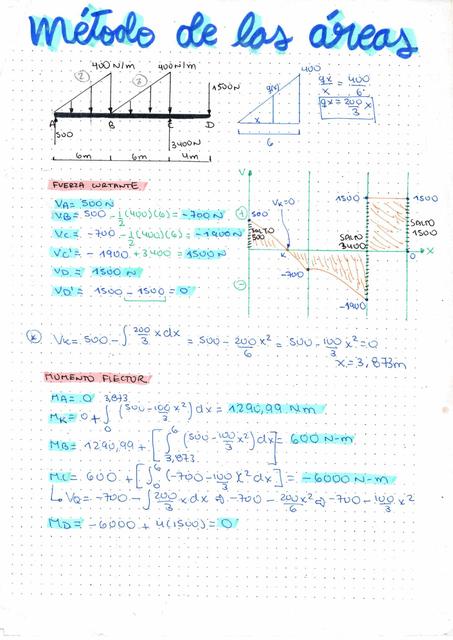 método de las áreas
400 N/m 400N/m
2 2
1500N
A B C D
500 3400N
6m 6m 4m
400
q(x)
x
6
qx/x = 400/6
qx = 200/3 x
FUERZA CORTANTE
VA = 500N
VB = 500 - 1/2(400)(6) = -700N
VC = -700 - 1/2(400)(6) = -1900N
VC' = -1900 + 3400 = 1500N
VD = 1500N
VD' = 1500 - 1500 = 0
V
500
SALTO 500
VK=0
K
-700
-1900
1500 1500
SALTO 3400
SALTO 1500
0
x
VK = 500 - ∫ 200/3 x dx = 500 - 200/6 x² = 500 - 100/3 x² = 0
x = 3,873m
MOMENTO FLECTOR
MA = 0
MK = 0 + ∫₀^3,873 (500 - 100/3 x²) dx = 1290,99 Nm
MB = 1290,99 + [∫_3,873^6 (500 - 100/3 x²) dx] = 600 N-m
MC = 600 + [∫₀^6 (-700 - 100/3 x² dx] = -6000 N-m
↳ VQ = -700 - ∫ 200/3 x dx ⇒ -700 - 200/6 x² ⇒ -700 - 100/3 x²
MD = -6000 + 4(1500) = 0